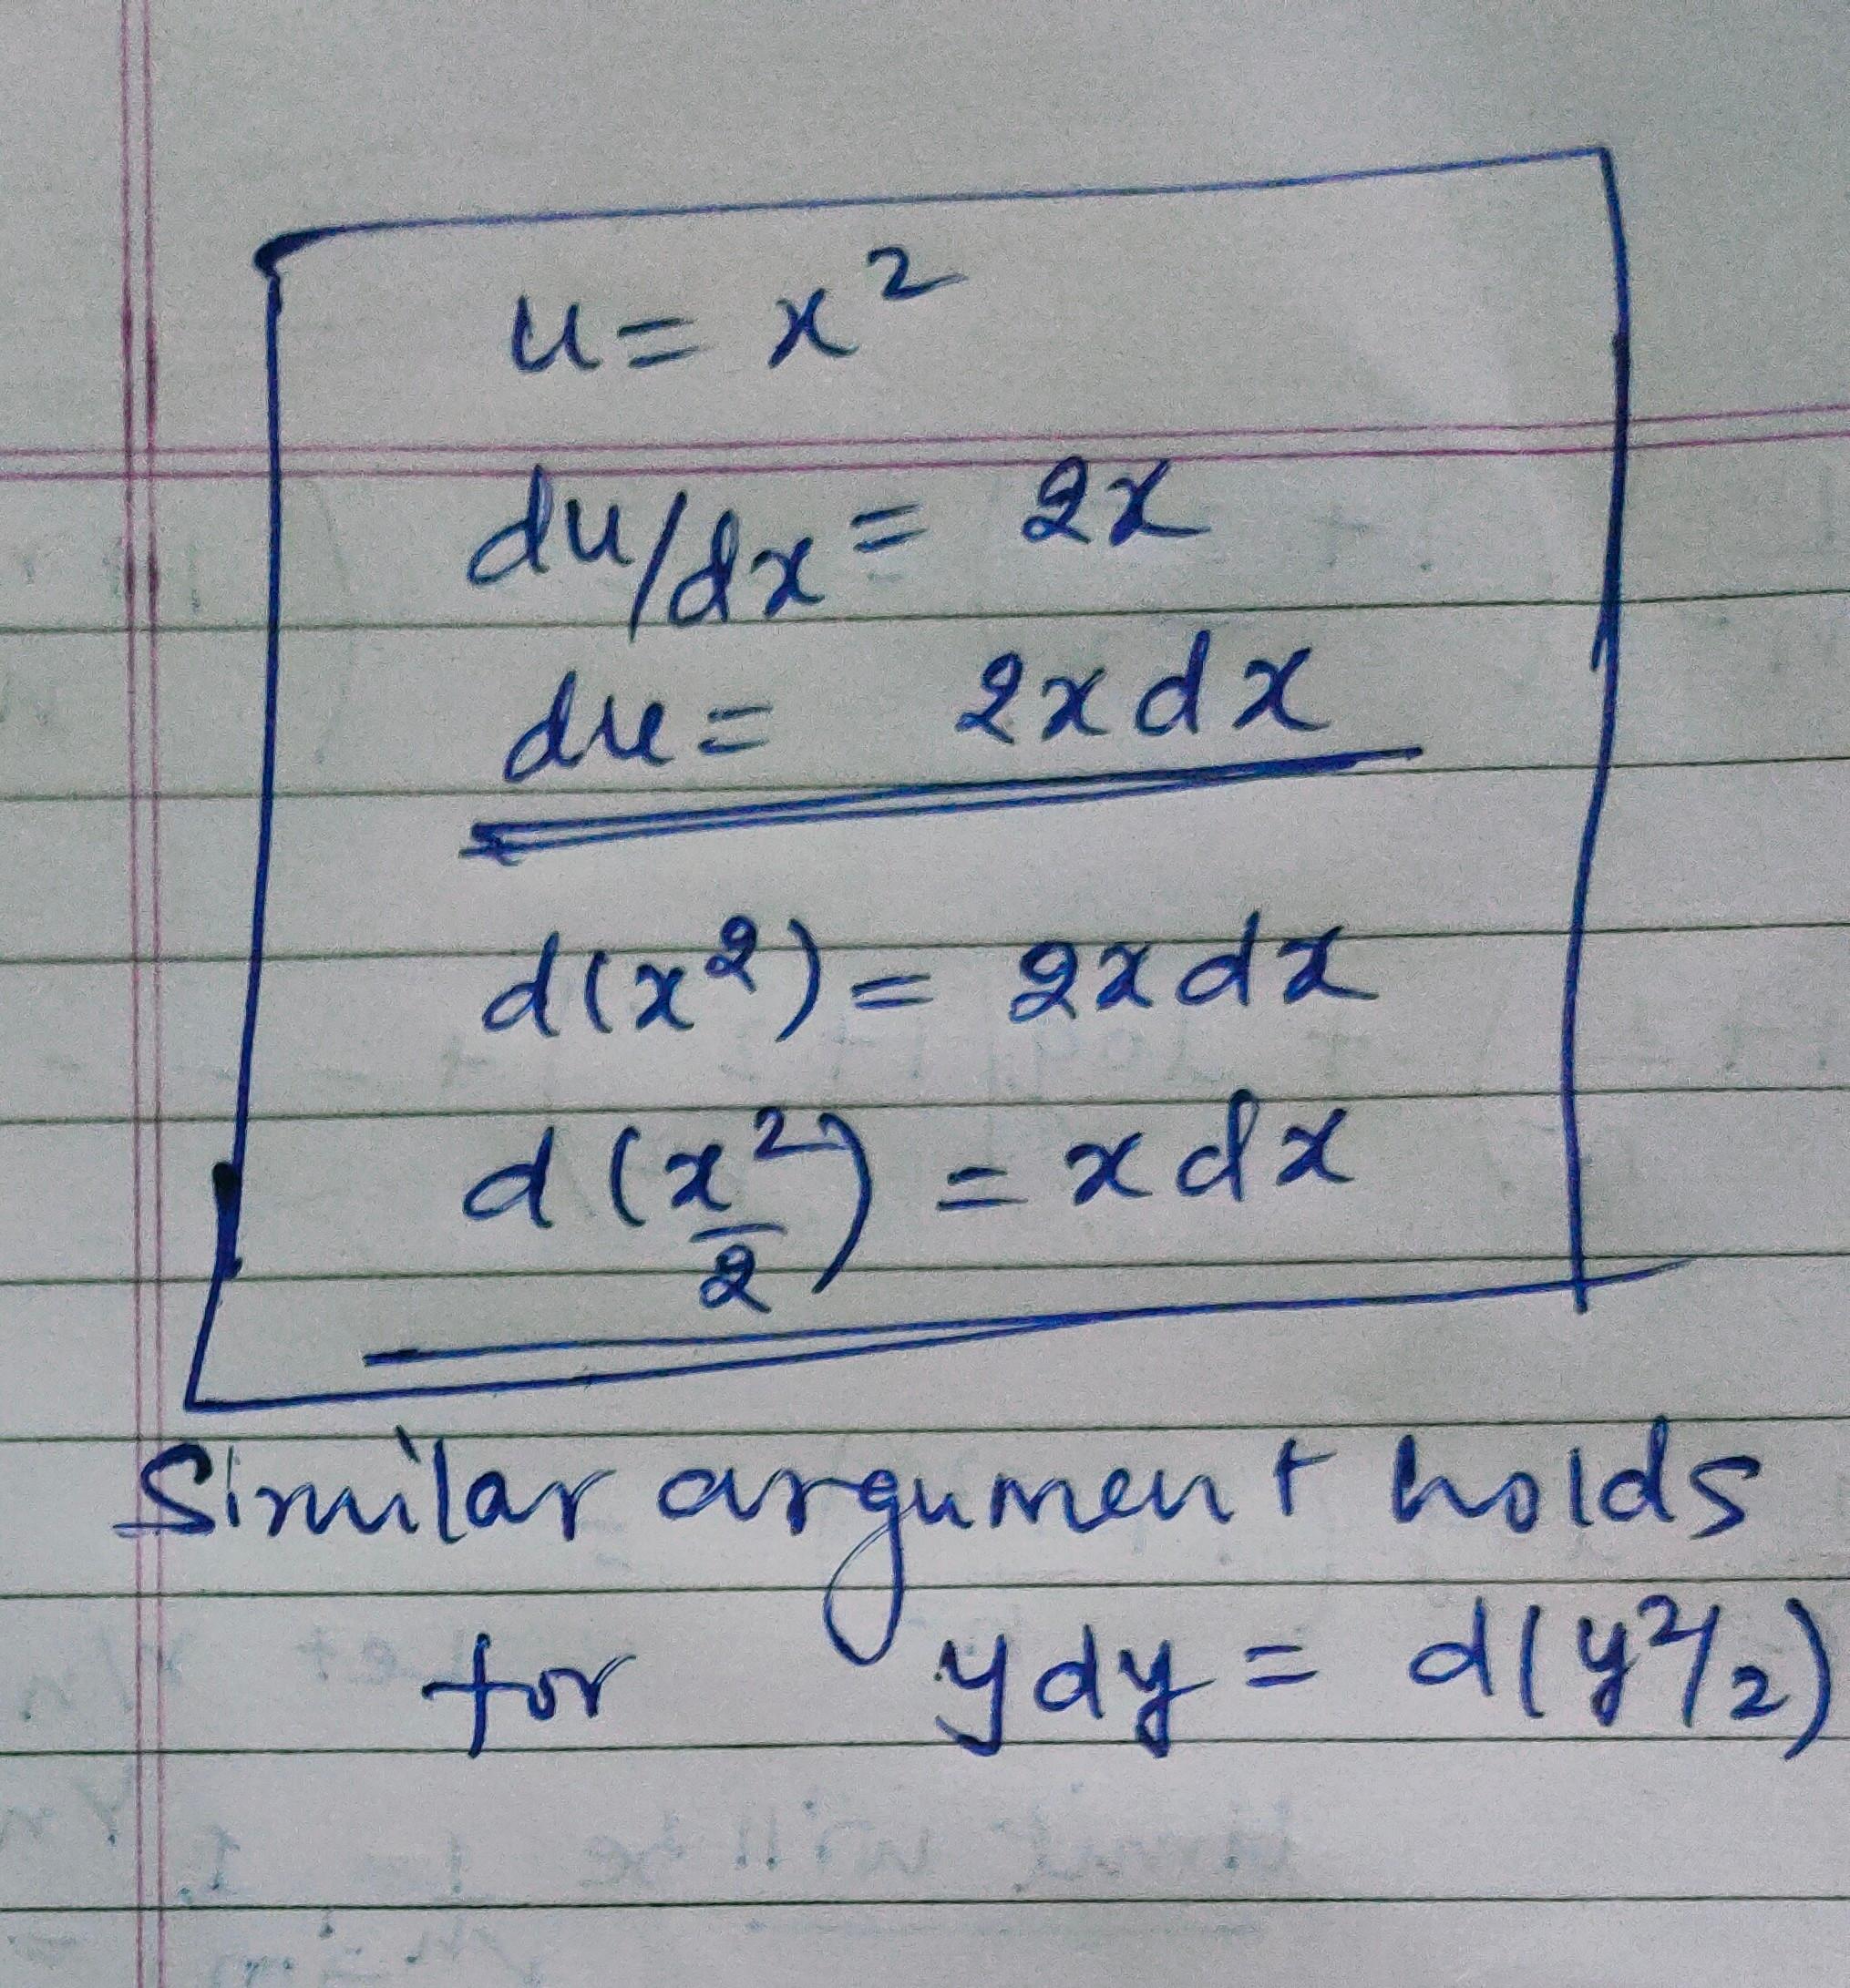 u = x²
du/dx = 2x
du = 2xdx
d(x²) = 2xdx
d(x²/2) = xdx
Similar argument holds
for ydy = d(y²/2)